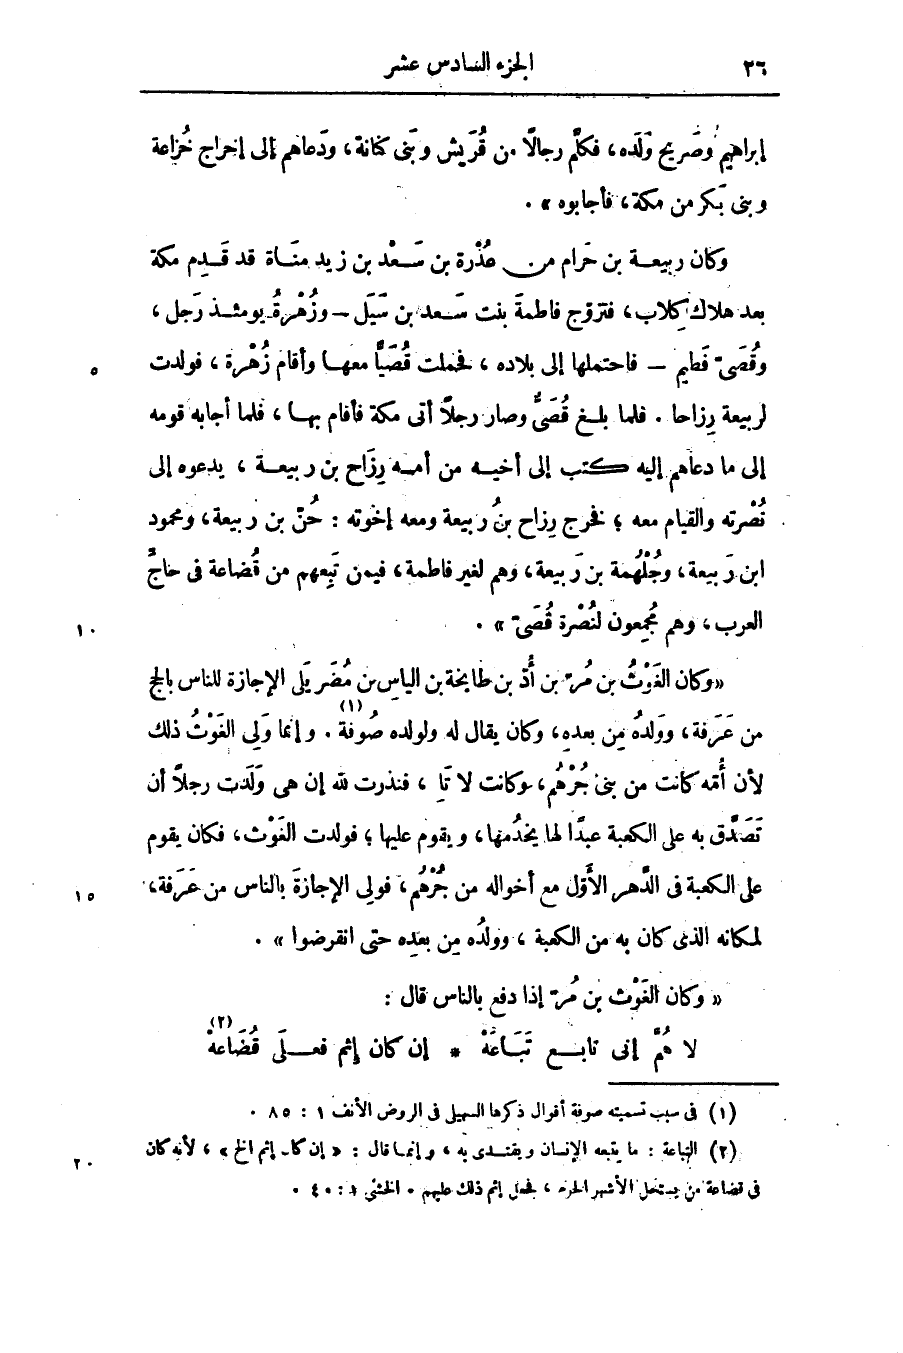 ٢٦
الجزء السادس عشر
إبراهيم وصَريح وَلَده، فكلَّم رجالًا من قُرَيش وبَنى كنانة، ودَعاهم إلى إخراج خُزاعة
وبنى بَكر من مكة، فأجابوه» .
وكان ربيعة بن حَرام من عُذْرة بن سَعْد بن زيد مَنَاة قد قَدِم مكة
بعد هلاك كِلاب، فتزوّج فاطمةَ بنت سَعد بن سَيَل — وزُهْرةُ يومئذ رَجل،
وقُصَىّ فَطيم — فاحتملها إلى بلاده، فحملت قُصَيًّا معها وأقام زُهْرة، فولدت
٥
لربيعة رِزاحا . فلما بلغ قُصَىٌّ وصار رجلًا أتى مكة فأقام بها، فلما أجابه قومه
إلى ما دعاهم إليه كتب إلى أخيه من أمه رِزَاح بن ربيعة، يدعوه إلى
نُصْرته والقيام معه؛ فخرج رِزاح بنُ رَبيعة ومعه إخوته : حُنّ بن رَبيعة، ومحمود
ابن رَبيعة، وجُلْهُمة بن رَبيعة، وهم لغير فاطمة، فيمن تَبِعهم من قُضاعة فى حاجّ
العرب، وهم مُجْمِعون لنُصْرة قُصَىّ» .
١٠
«وكان الغَوْثُ بن مُرّ بن أُدّ بن طابخة بن الياس بن مُضَر يَلِى الإجازة للناس بالحج
من عَرَفة، ووَلدُه مِن بعدِه، وكان يقال له ولولده صُوفَة(١) . وإنما وَلِى الغَوْثُ ذلك
لأن أُمَّه كانت من بنى جُرْهُم، وكانت لا تَلِد، فنذرت لله إن هى وَلَدَت رجلًا أن
تَصَدَّق به على الكعبة عبدًا لها يخدُمها، ويقوم عليها؛ فولدت الغَوْث، فكان يقوم
على الكعبة فى الدَّهر الأَوّل مع أخواله من جُرْهُم، فولِى الإجازةَ بالناس من عَرَفة،
١٥
لمكانه الذى كان به من الكعبة، وولدُه مِن بعدِه حتى انقرضوا» .
«وكان الغَوْث بن مُرّ إذا دفع بالناس قال :
لا هُمَّ إنى تابع تَبَاعَهْ * إن كان إثم فعلَى قُضَاعَهْ(٢)
(١) فى سبب تسميته صوفة أقوال ذكرها السهيلى فى الروض الأنف ١ : ٨٥ .
(٢) التباعة : ما يتبعه الإنسان ويقتدى به، وإنما قال : «إن كان إثم الخ»، لأنه كان
٢٠
فى قضاعة من يستحل الأشهر الحرم، فجعل إثم ذلك عليهم . الخشنى ١ : ٤٠ .